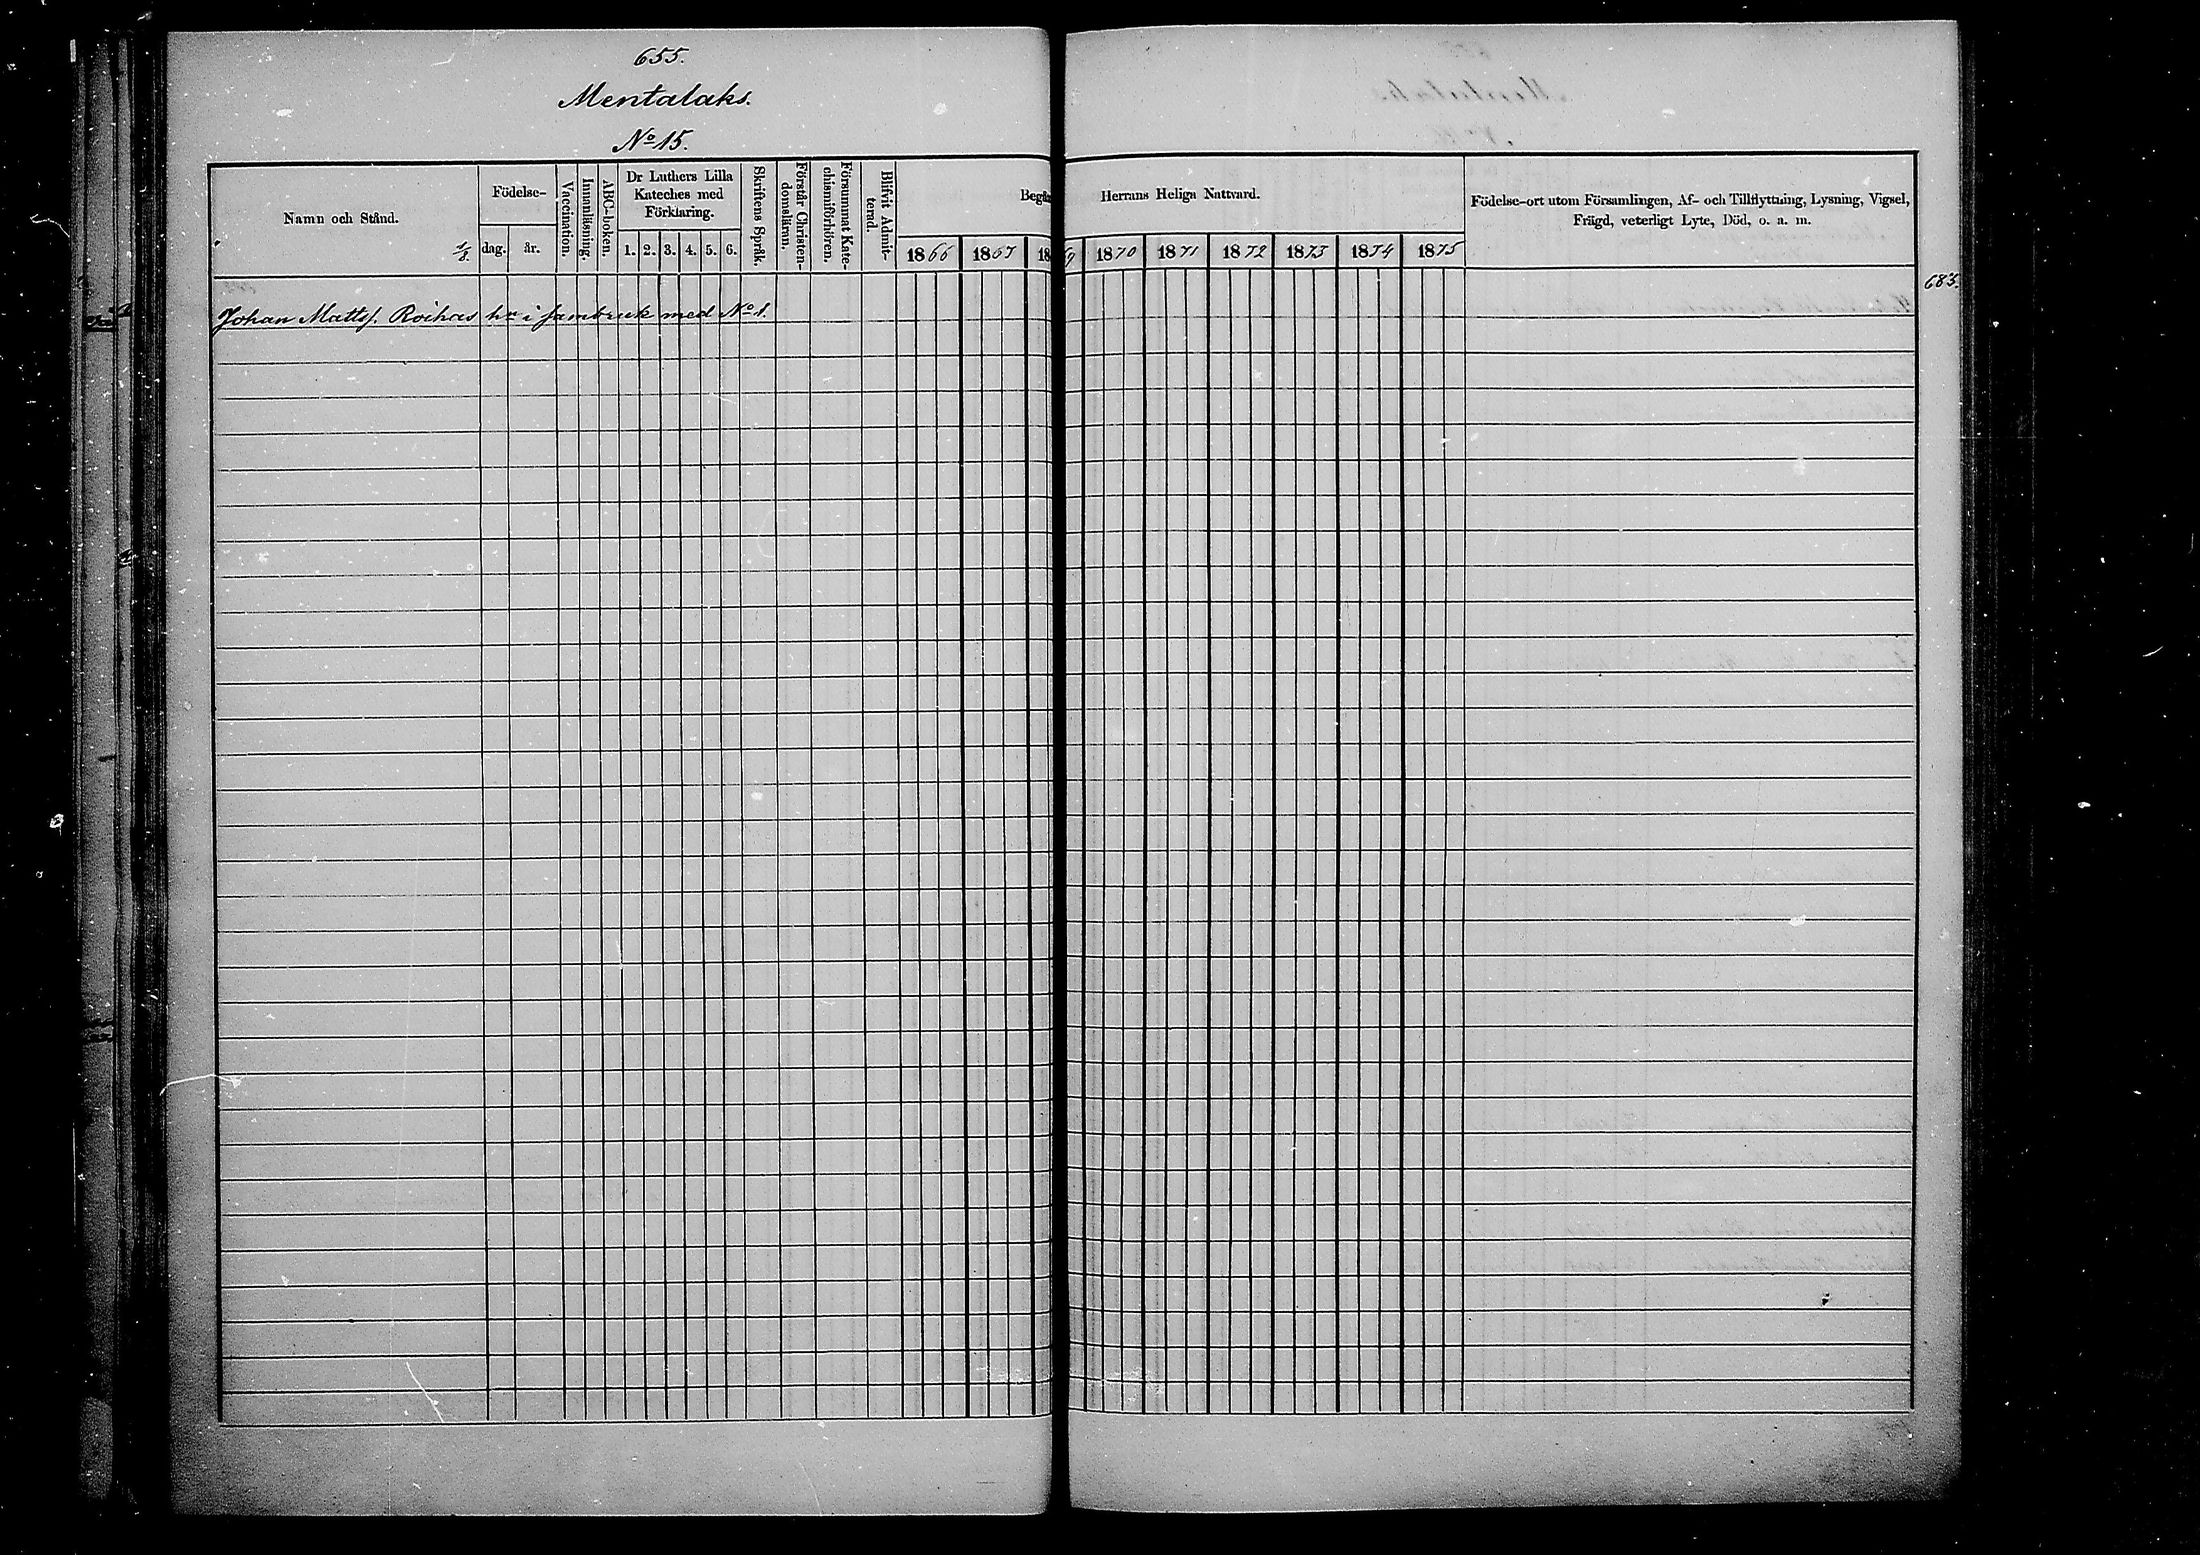 655.
Mentalaks.
No 15.
Namn och Stånd.
Födelse-
dag.
år.
Vaccination.
Innanläsning.
ABC-boken.
Dr Luthers Lilla
Kateches med
Förklaring.
1. 2. 3. 4. 5. 6.
Skriftens Språk.
Förstår Christen-
domsläran.
Försummat Kate-
chismiförhören.
Blifvit Admit-
terad.
Begån
Herrans Heliga Nattvard.
1866 1867 18 9 1870 1871 1872 1873 1874 1875
Födelse-ort utom Församlingen, Af- och Tillflyttning, Lysning, Vigsel,
Frägd, veterligt Lyte, Död, o. a. m.
683.
Johan Mattsf. Roihas hr i sambruk med No 1.